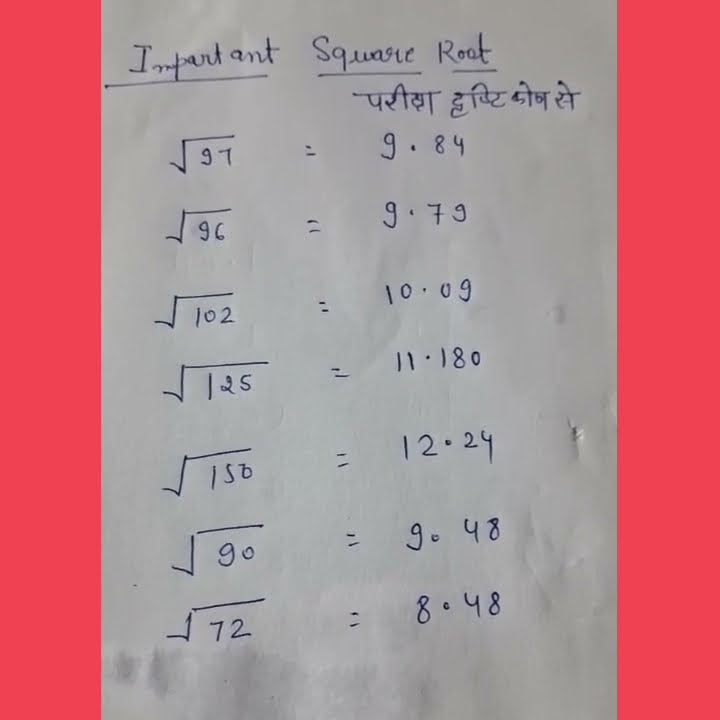 Impartant Square Root
परीक्षा दृष्टिकोन से
√97 = 9.84
√96 = 9.79
√102 = 10.09
√125 = 11.180
√150 = 12.24
√90 = 9.48
√72 = 8.48